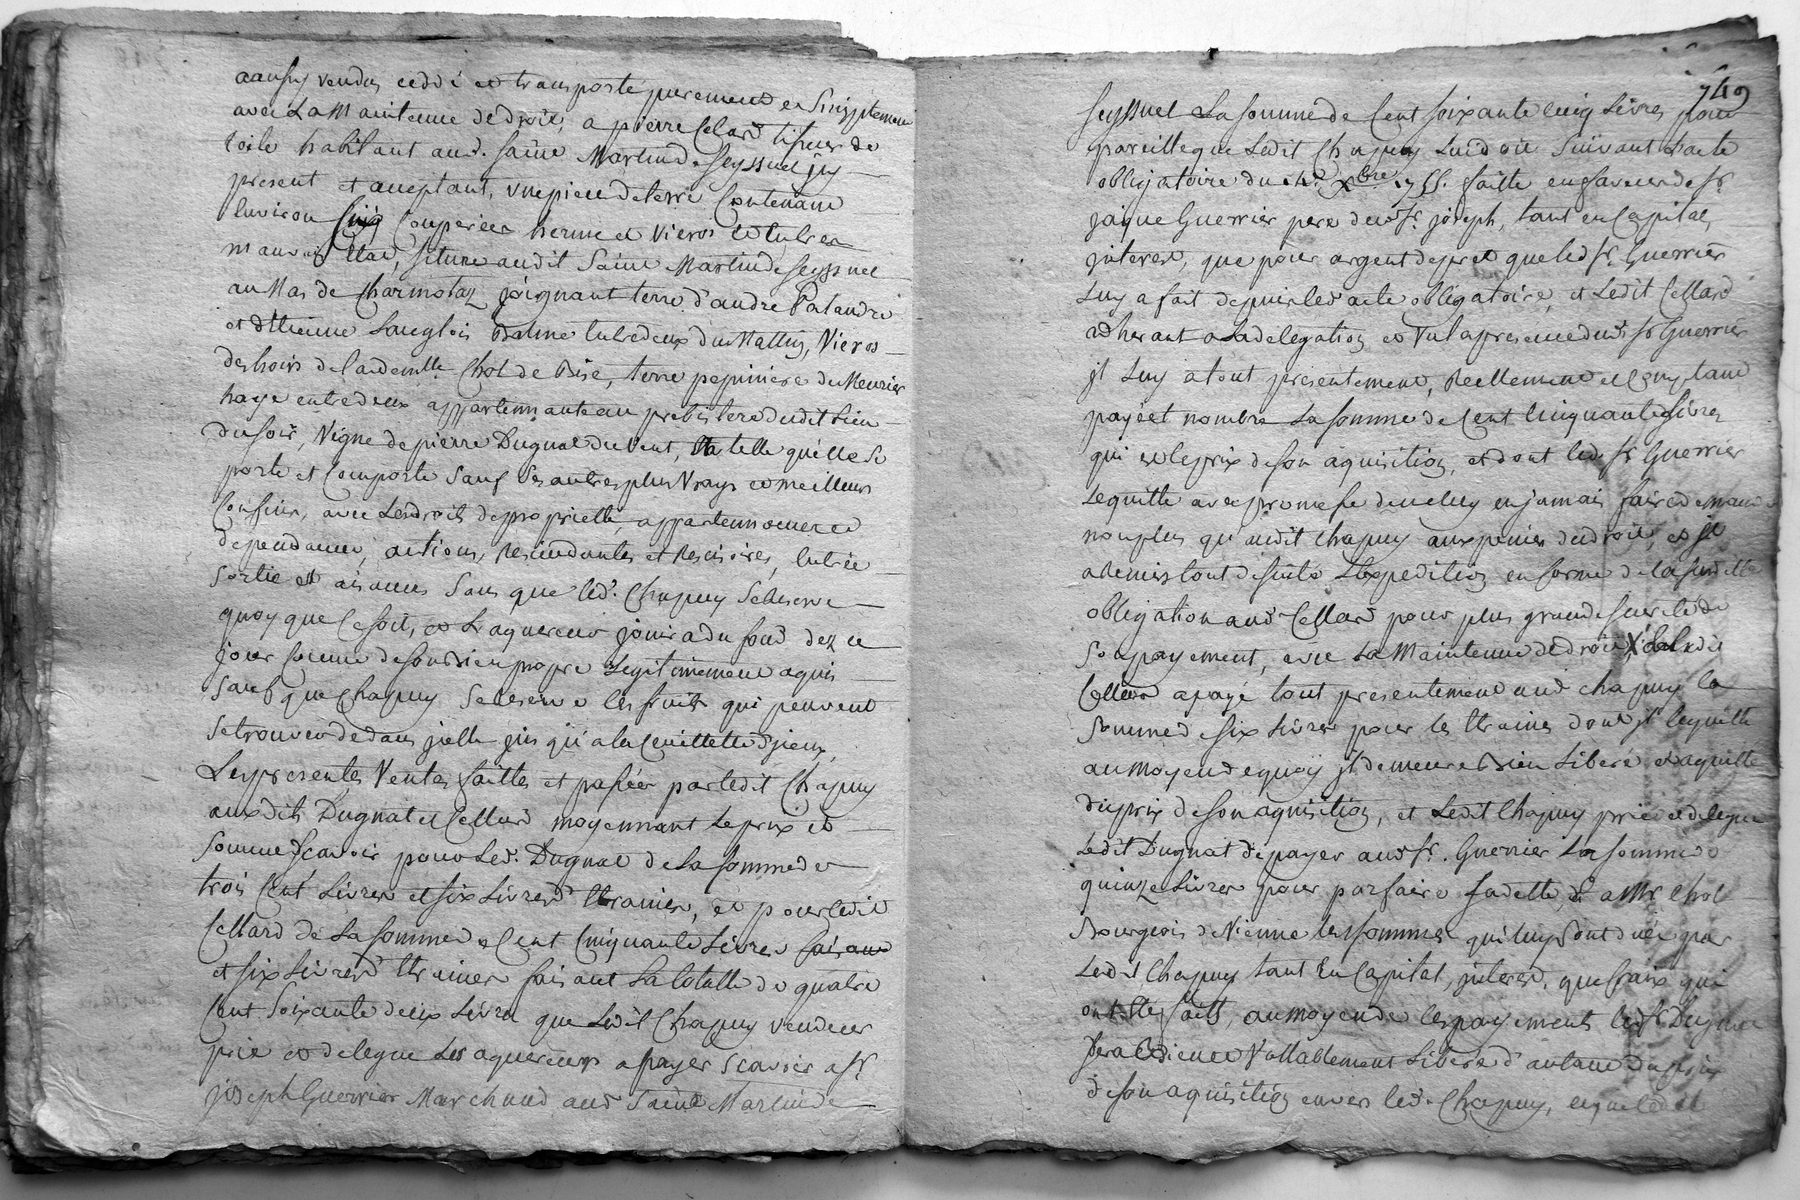 aaussy vendu ceddé et transporté purement et simplement
avec La Maintenue de droit, a pierre Celard tisseur de
toile habitant aud. saint Martin de seyssuel jcy
present et aceptant, vne piece de terre Contenant
Environ Cinq Couperées herme et vieros et tres en
mauvais Etat, situee audit Saint Martin de seyssuel
au Mas de Charmotaz joignant terre d'andré Patandre
et Ettienne Langlois Balme entredeux du Mattin, Vieros
des hoirs de lad demlle Chol de Bise, terre pepiniere de Meurier
haye entredeux appartennante au presbitere dudit Lieu
du soir, Vigne de pierre Dugnat du Vent, Et telle quelle Se
porte et Comporte Sauf Ses autres plus Vrays et meilleurs
Confins, avec Les droits de proprietté, appartennances et
dependances, actions, Rescindantes et Rescisoires, Entrée
Sortie et aisances Sans que led. Chapuy Se Reserve
quoy que Ce soit, et Laquereur jouira du fond dez ce
jour Comme de son Bien propre Legitimement aquis
Sauf que Chapuy Se Reserve les fruits qui peuvent
Se trouver dedans jcelle jusqu'a la Ceuillette d'jceux,
Les presentes Ventes faittes et passées par Ledit Chapuy
auxdits Dugnat et Cellard moyennant Le prix et
Somme Scavoir pour Led. Dugnat de La somme de
trois Cent Livres et six Livres d'Etraines, et pour Ledit
Cellard de La somme de Cent Cinquante Livres
et six Livres d'Etraines faisant La totalle de quatre
Cent Soixante deux Livres que Ledit Chapuy vendeur
prie et delegue Les aquereurs a payer scavoir a Sr.
joseph Guerrier Marchand aud Saint Martin de
749
seyssuel La somme de Cent soixante cinq Livres pour
pareille que Ledit Chapuy Luy doit Suivant L'acte
obligatoire du 14e. Xbre 1755. faitte en faveur de Sr
jaque Guerrier pere dud Sr. joseph, tant en Capital,
jnterest, que pour argent de pret que led Sr. Guerrier
Luy a fait depuis led acte obligatoire, et Ledit Cellard
adherant a La delegation et Vu la presence dud Sr Guerrier
jl Luy a tout presentement, Reellement et Comptant
payé et nombré La somme de Cent Cinquante Livres
qui est le prix de son aquisition, et dont led. Sr Guerrier
Le quitte avec promesse de ne luy en jamais faire demande
non plus qu'audit Chapuy aux peines de droit, et jl
a Remis tout de suite L'Expedition en forme de la susditte
obligation aud Cellard pour plus grande surete de
Son payement, avec La Maintenue de droit, X Ledit
Cellard a payé tout presentement aud Chapuy la
Somme de six Livres pour les Etraines dont jl le quitte
au moyen de quoy jl demeure Bien Liberé et aquitté
du prix de son aquisition, et Ledit Chapuy prie et delegue
Ledit Dugnat de payer aud Sr. Guerrier La somme de
quinze Livres pour parfaire sa dette, Et a Mr Chol
Bourgeois de Vienne les sommes qui luy sont duës par
Led. Chapuy tant En Capital, jnterest, que fraix qui
ont Eté faits, au moyen de les payements led Sr Dugnat
sera Bien et Vallablement Liberé d'autant du prix
de son aquisition envers led. Chapuy, lequel dit